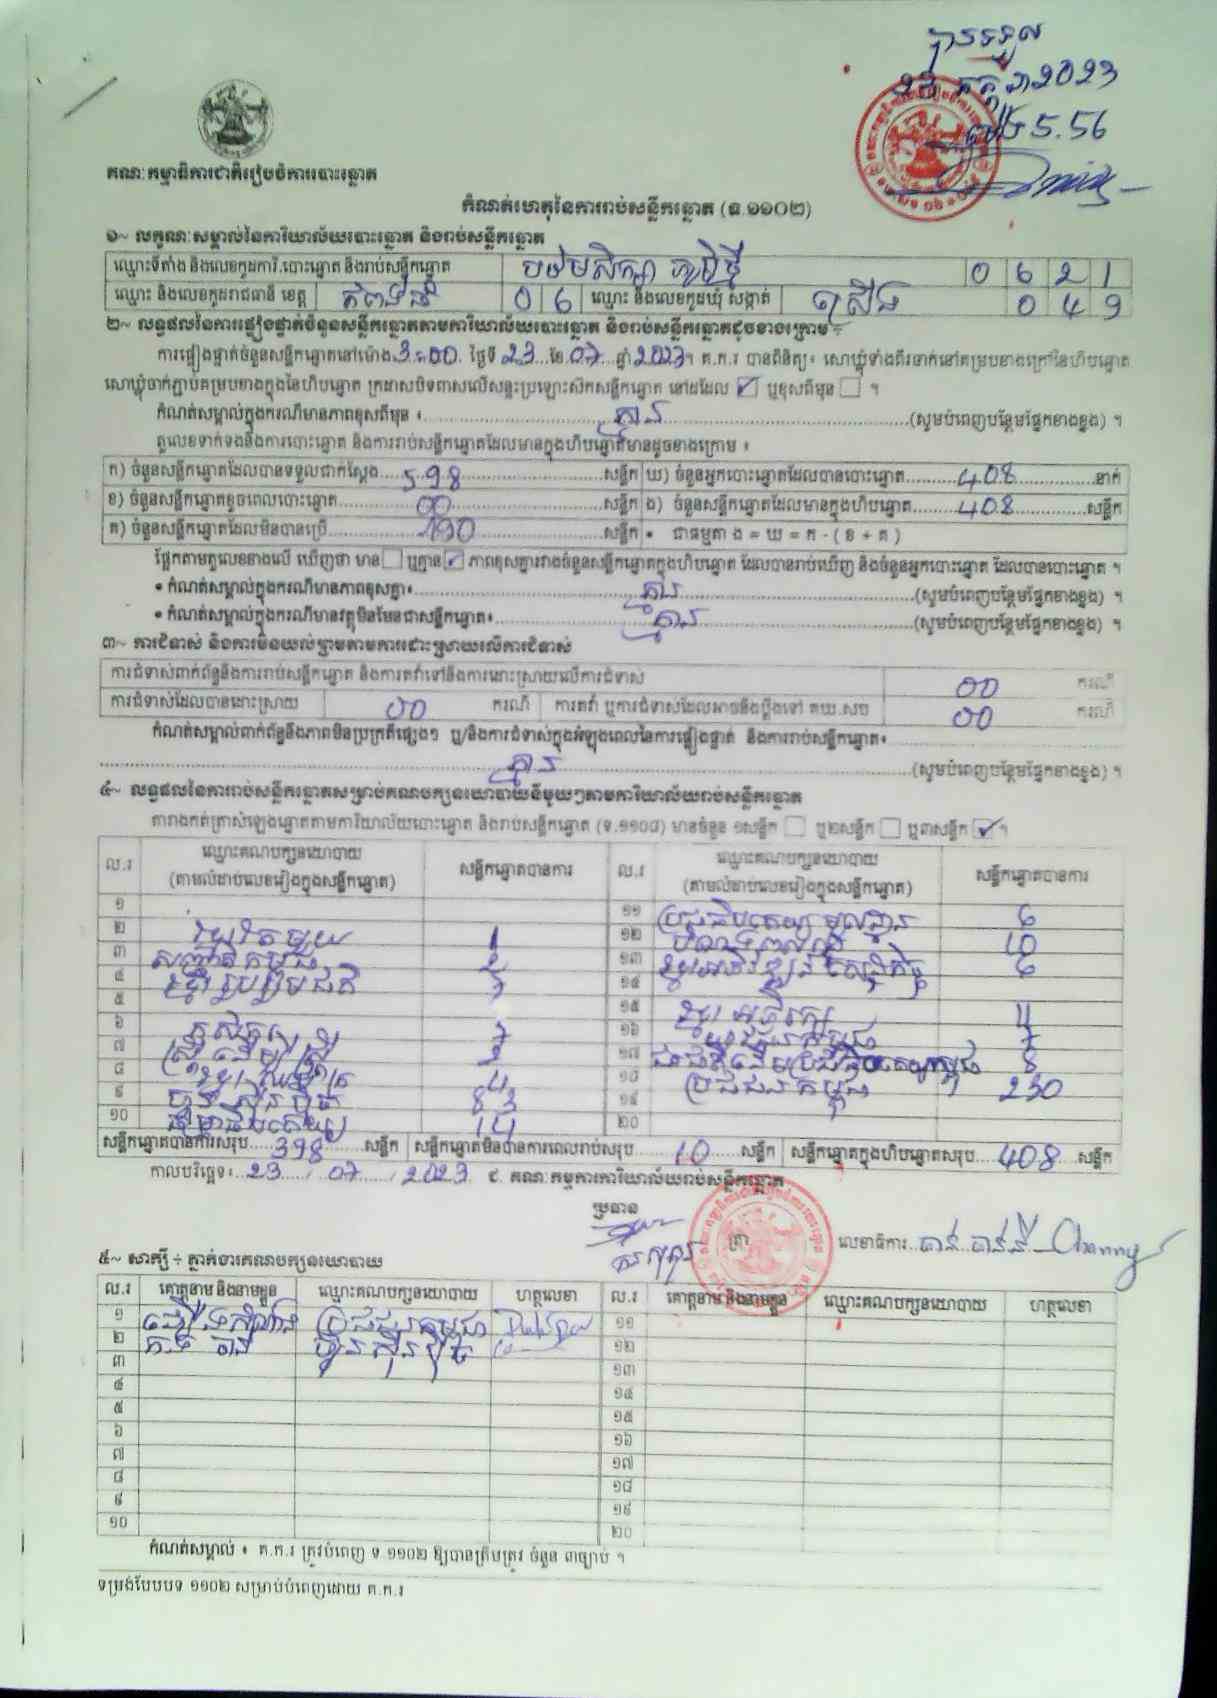 បានទទួល
កក្កដា 2023
ម៉ោង 5.56
គណៈកម្មាធិការជាតិរៀបចំការបោះឆ្នោត
កំណត់ហេតុនៃការរាប់សន្លឹកឆ្នោត (ទ.១១០២)
១~ លក្ខណៈសម្គាល់នៃការិយាល័យបោះឆ្នោត និងរាប់សន្លឹកឆ្នោត
ឈ្មោះទីតាំង និងលេខកូដការិ.បោះឆ្នោត និងរាប់សន្លឹកឆ្នោត បឋមសិក្សា 0 6 2 1
ឈ្មោះ និងលេខកូដរាជធានី ខេត្ត កំពង់ធំ 0 6 ឈ្មោះ និងលេខកូដឃុំ សង្កាត់ 0 4 9
២~ លទ្ធផលនៃការផ្ទៀងផ្ទាត់ចំនួនសន្លឹកឆ្នោតតាមការិយាល័យបោះឆ្នោត និងរាប់សន្លឹកឆ្នោតដូចខាងក្រោម ÷
ការផ្ទៀងផ្ទាត់ចំនួនសន្លឹកឆ្នោតនៅម៉ោង 3:00 ថ្ងៃទី 23 ខែ 07 ឆ្នាំ 2023។ គ.ក.រ បានពិនិត្យ៖ សោឃ្លុំទាំងពីរចាក់នៅគម្របខាងក្រៅនៃហិបឆ្នោត
សោឃ្លុំចាក់ភ្ជាប់គម្របខាងក្នុងនៃហិបឆ្នោត ក្រដាសបិទពាសលើសន្ទះប្រឡោះស៊កសន្លឹកឆ្នោត នៅដដែល ☑ ឬខុសពីមុន ☐ ។
កំណត់សម្គាល់ក្នុងករណីមានភាពខុសពីមុន ៖ គ្មាន (សូមបំពេញបន្ថែមផ្នែកខាងខ្នង) ។
តួលេខទាក់ទងនឹងការបោះឆ្នោត និងការរាប់សន្លឹកឆ្នោតដែលមានក្នុងហិបឆ្នោតមានដូចខាងក្រោម ៖
ក) ចំនួនសន្លឹកឆ្នោតដែលបានទទួលជាក់ស្តែង 598 សន្លឹក ឃ) ចំនួនអ្នកបោះឆ្នោតដែលបានបោះឆ្នោត 408 នាក់
ខ) ចំនួនសន្លឹកឆ្នោតខូចពេលបោះឆ្នោត 00 សន្លឹក ង) ចំនួនសន្លឹកឆ្នោតដែលមានក្នុងហិបឆ្នោត 408 សន្លឹក
គ) ចំនួនសន្លឹកឆ្នោតដែលមិនបានប្រើ 190 សន្លឹក • ជាធម្មតា ង = ឃ = ក - ( ខ + គ )
ផ្អែកតាមតួលេខខាងលើ ឃើញថា មាន ☐ ឬគ្មាន ☑ ភាពខុសគ្នារវាងចំនួនសន្លឹកឆ្នោតក្នុងហិបឆ្នោត ដែលបានរាប់ឃើញ និងចំនួនអ្នកបោះឆ្នោត ដែលបានបោះឆ្នោត ។
• កំណត់សម្គាល់ក្នុងករណីមានភាពខុសគ្នា៖ គ្មាន (សូមបំពេញបន្ថែមផ្នែកខាងខ្នង) ។
• កំណត់សម្គាល់ក្នុងករណីមានវត្ថុមិនមែនជាសន្លឹកឆ្នោត៖ គ្មាន (សូមបំពេញបន្ថែមផ្នែកខាងខ្នង) ។
៣~ ការជំទាស់ និងការមិនយល់ព្រមតាមការដោះស្រាយលើការជំទាស់
ការជំទាស់ពាក់ព័ន្ធនឹងការរាប់សន្លឹកឆ្នោត និងការតវ៉ាទៅនឹងការដោះស្រាយលើការជំទាស់ 00 ករណី
ការជំទាស់ដែលបានដោះស្រាយ 00 ករណី ការតវ៉ា ឬការជំទាស់ដែលអាចនឹងប្តឹងទៅ គឃ.សប 00 ករណី
កំណត់សម្គាល់ពាក់ព័ន្ធនឹងភាពមិនប្រក្រតីផ្សេងៗ ឬ/និងការជំទាស់ក្នុងអំឡុងពេលនៃការផ្ទៀងផ្ទាត់ និងការរាប់សន្លឹកឆ្នោត៖
គ្មាន (សូមបំពេញបន្ថែមផ្នែកខាងខ្នង) ។
៤~ លទ្ធផលនៃការរាប់សន្លឹកឆ្នោតសម្រាប់គណបក្សនយោបាយនីមួយៗតាមការិយាល័យរាប់សន្លឹកឆ្នោត
តារាងកត់ត្រាសំឡេងឆ្នោតតាមការិយាល័យបោះឆ្នោត និងរាប់សន្លឹកឆ្នោត (ទ.១១០៨) មានចំនួន ១សន្លឹក ☐ ឬ២សន្លឹក ☐ ឬ៣សន្លឹក ☑ ។
ល.រ ឈ្មោះគណបក្សនយោបាយ សន្លឹកឆ្នោតបានការ ល.រ ឈ្មោះគណបក្សនយោបាយ សន្លឹកឆ្នោតបានការ
(តាមលំដាប់លេខរៀងក្នុងសន្លឹកឆ្នោត) (តាមលំដាប់លេខរៀងក្នុងសន្លឹកឆ្នោត)
១ ១១ ប្រជាធិបតេយ្យមូលដ្ឋាន 6
២ ១២ 10
៣ ១៣ 6
៤ ខ្មែររួបរួមជាតិ ១៤
៥ ១៥ 4
៦ ១៦ 7
៧ ១៧ 8
៨ 4 ១៨ ប្រជាជនកម្ពុជា 230
៩ ហ៊្វុនស៊ិនប៉ិច 83 ១៩
១០ 14 ២០
សន្លឹកឆ្នោតបានការសរុប 398 សន្លឹក សន្លឹកឆ្នោតមិនបានការពេលរាប់សរុប 10 សន្លឹក សន្លឹកឆ្នោតក្នុងហិបឆ្នោតសរុប 408 សន្លឹក
កាលបរិច្ឆេទ៖ 23 / 07 / 2023 ជ. គណៈកម្មការការិយាល័យរាប់សន្លឹកឆ្នោត
ប្រធាន
ត្រា លេខាធិការ
៥~ សាក្សី ÷ ភ្នាក់ងារគណបក្សនយោបាយ
ល.រ គោត្តនាម និងនាមខ្លួន ឈ្មោះគណបក្សនយោបាយ ហត្ថលេខា ល.រ គោត្តនាម និងនាមខ្លួន ឈ្មោះគណបក្សនយោបាយ ហត្ថលេខា
១ ប្រជាជនកម្ពុជា ១១
២ ហ៊្វុនស៊ិនប៉ិច ១២
៣ ១៣
៤ ១៤
៥ ១៥
៦ ១៦
៧ ១៧
៨ ១៨
៩ ១៩
១០ ២០
កំណត់សម្គាល់ ៖ គ.ក.រ ត្រូវបំពេញ ទ ១១០២ ឱ្យបានត្រឹមត្រូវ ចំនួន ៣ច្បាប់ ។
ទម្រង់បែបបទ ១១០២ សម្រាប់បំពេញដោយ គ.ក.រ